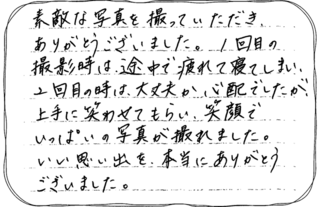 素敵な写真を撮っていただき、
ありがとうございました。1回目の
撮影時は、途中で疲れて寝てしまい、
2回目の時は、大丈夫か、心配でしたが、
上手に笑わせてもらい、笑顔で
いっぱいの写真が撮れました。
いい思い出を、本当にありがとう
ございました。